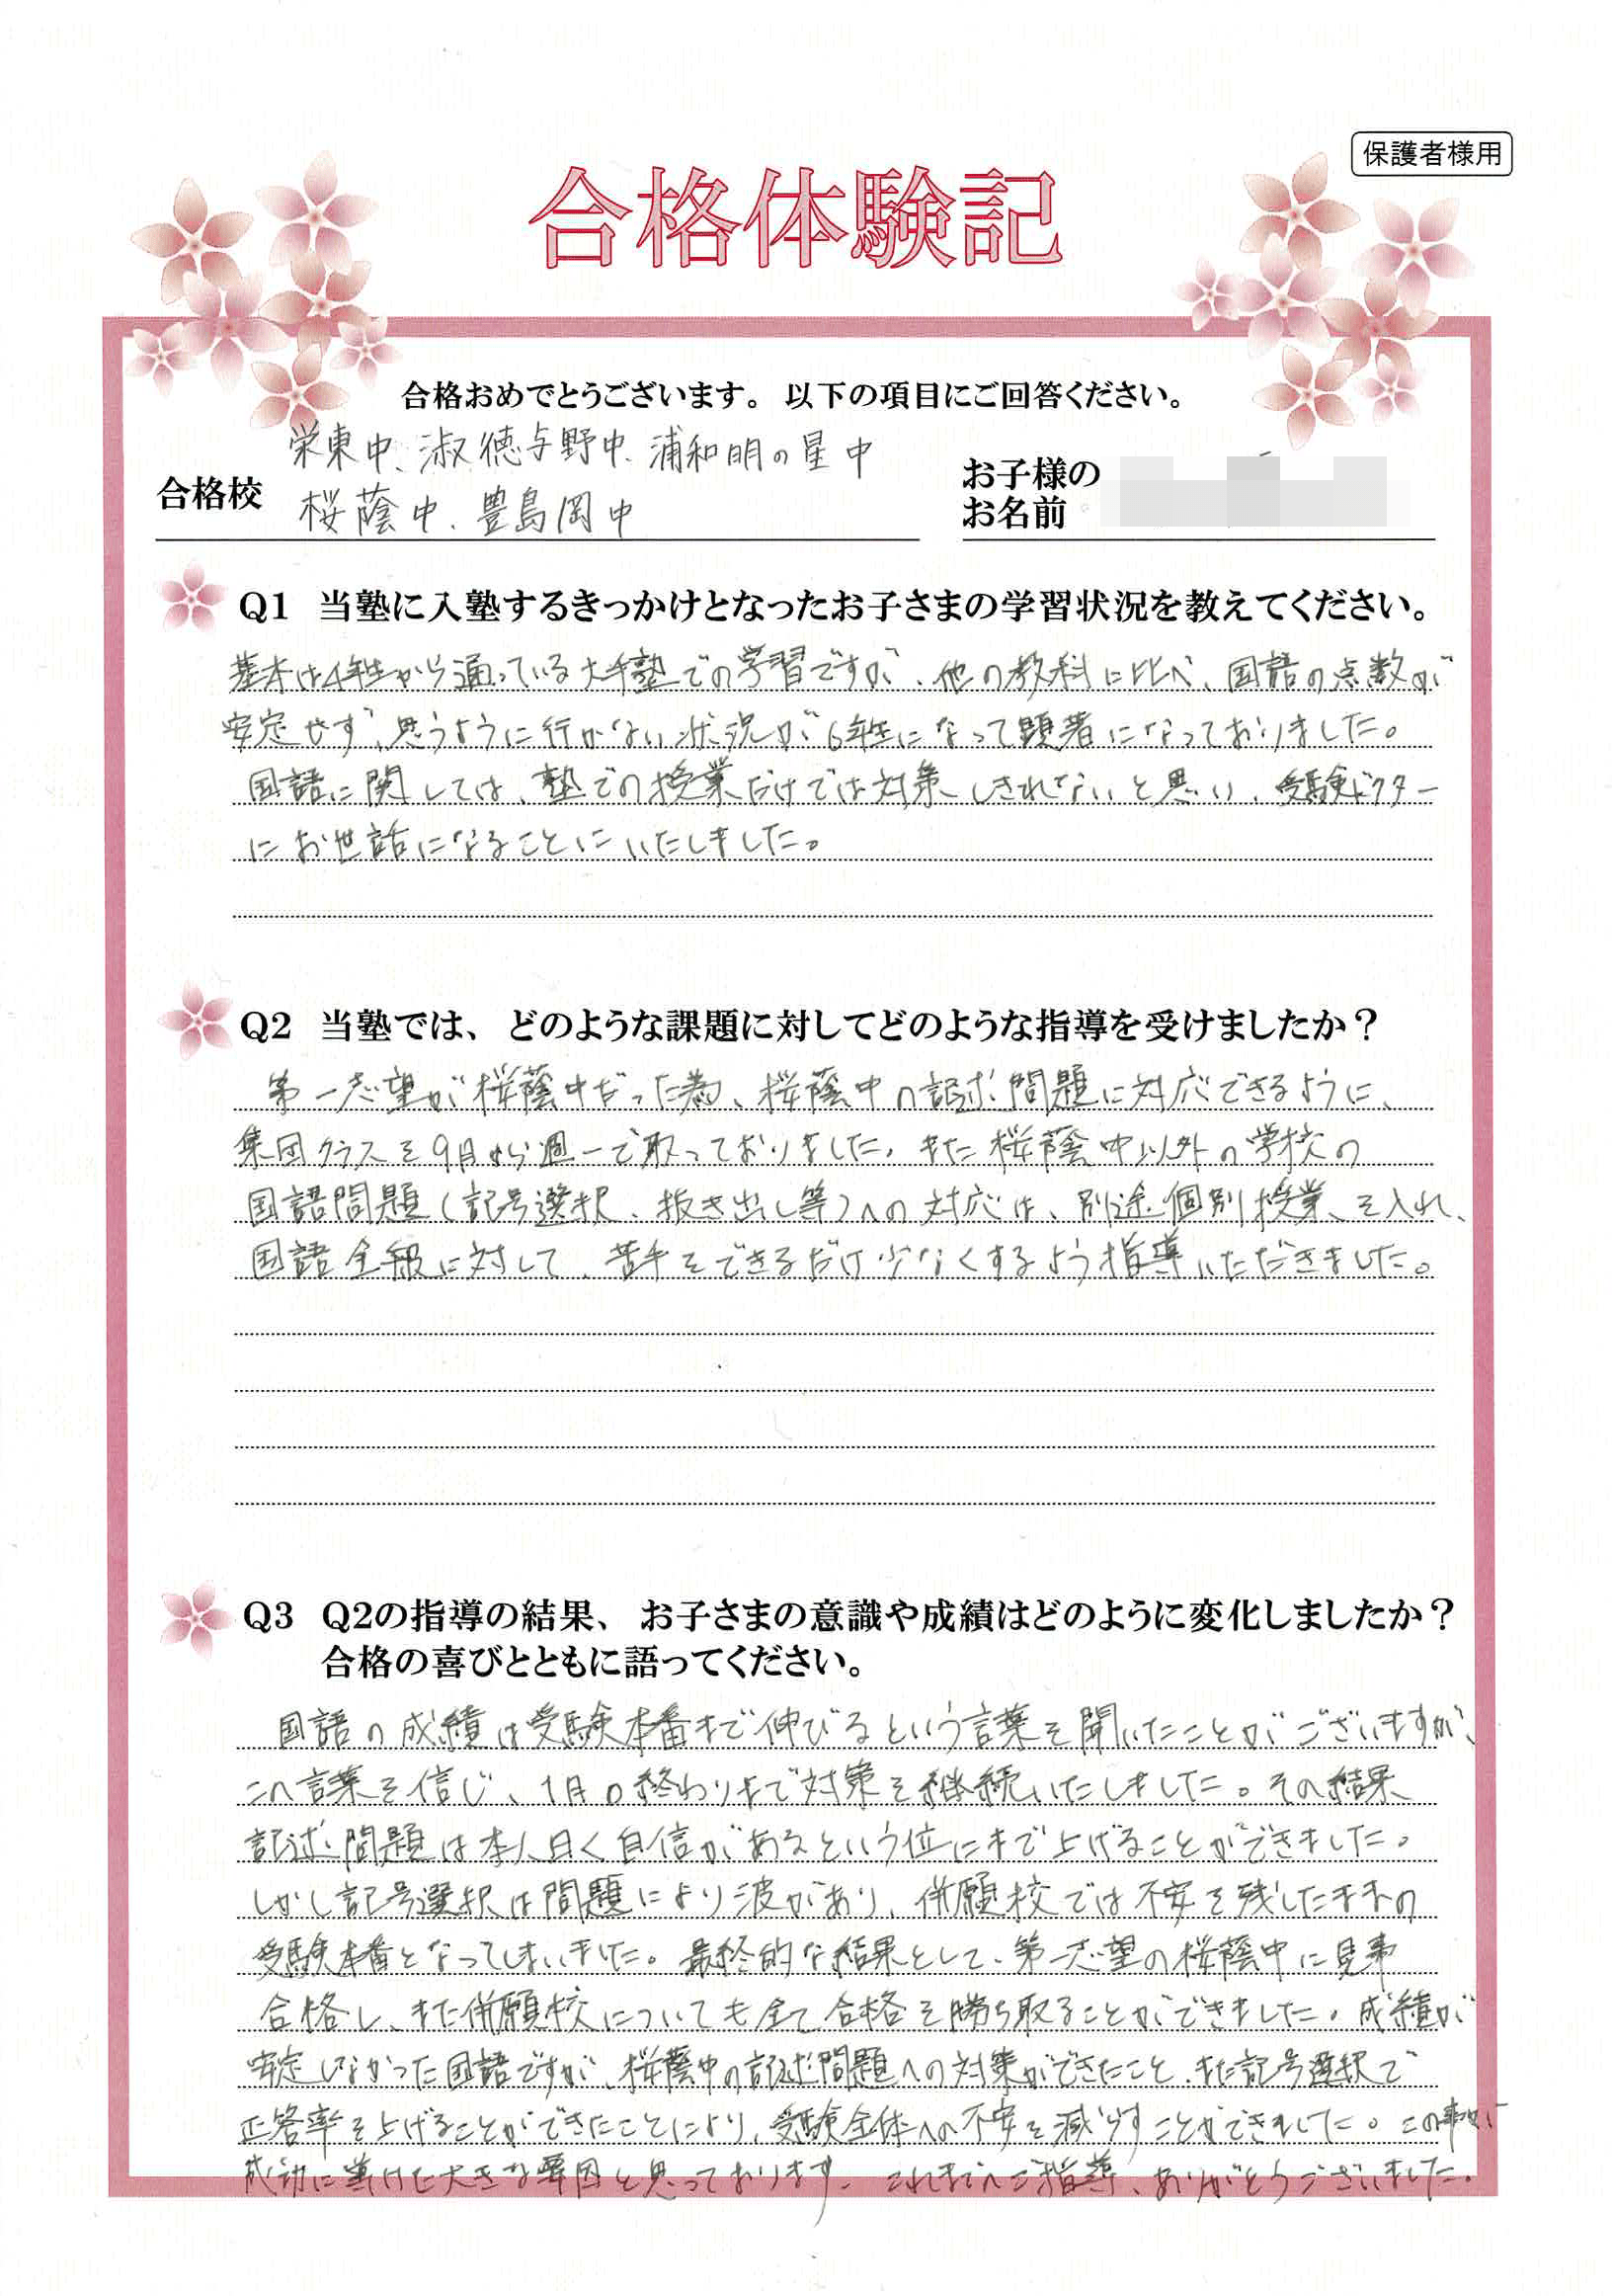 保護者様用
合格体験記
合格おめでとうございます。以下の項目にご回答ください。
合格校
栄東中、淑徳与野中、浦和明の星中
桜蔭中、豊島岡中
お子様の
お名前
Q1 当塾に入塾するきっかけとなったお子さまの学習状況を教えてください。
基本は4年生から通っている大手塾での学習ですが、他の教科に比べ、国語の点数が
安定せず、思うように行かない状況が6年生になって顕著になっておりました。
国語に関しては、塾での授業だけでは対策しきれないと思い、受験ドクター
にお世話になることにいたしました。
Q2 当塾では、どのような課題に対してどのような指導を受けましたか？
第一志望が桜蔭中だった為、桜蔭中の記述問題に対応できるように、
集団クラスを9月から週一で取っておりました。また桜蔭中以外の学校の
国語問題（記号選択、抜き出し等）への対応は、別途個別授業を入れ、
国語全般に対して、苦手をできるだけ少なくするよう指導いただきました。
Q3 Q2の指導の結果、お子さまの意識や成績はどのように変化しましたか？
合格の喜びとともに語ってください。
国語の成績は受験本番まで伸びるという言葉を聞いたことがございますが、
この言葉を信じ、1月の終わりまで対策を継続いたしました。その結果
記述問題は本人曰く自信があるという位にまで上げることができました。
しかし記号選択は問題により波があり、併願校では不安を残したままの
受験本番となってしまいました。最終的な結果として、第一志望の桜蔭中に見事
合格し、また併願校についても全て合格を勝ち取ることができました。成績が
安定しなかった国語ですが、桜蔭中の記述問題への対策ができたこと、また記号選択で
正答率を上げることができたことにより、受験全体への不安を減らすことができました。この事が
成功に導けた大きな要因と思っております。これまでのご指導、ありがとうございました。